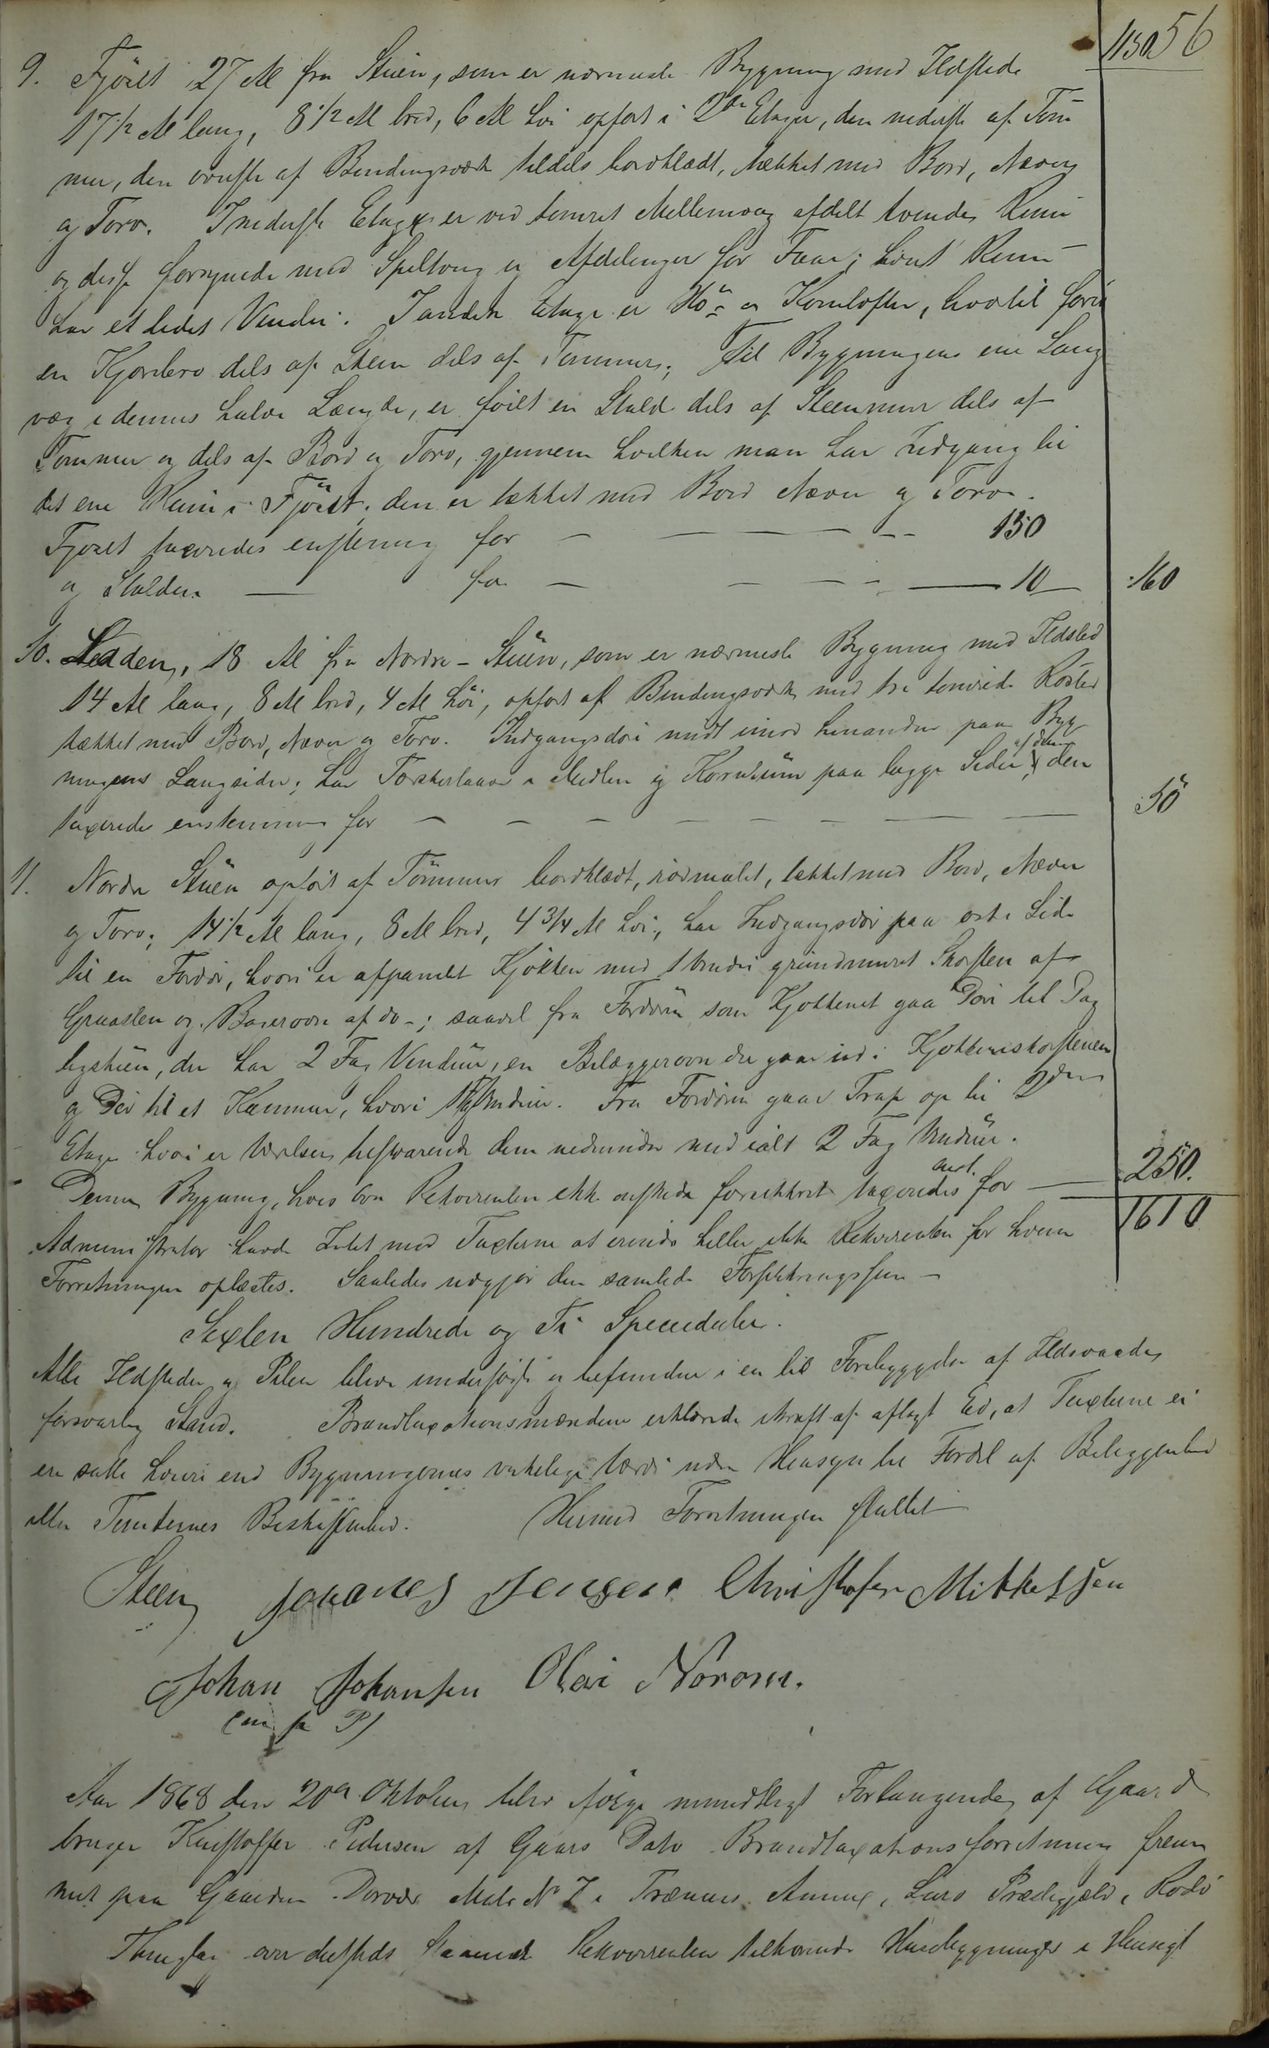 1150 56
9. Fjöset 27 Al fra Stuen, som er nærmeste Bygning med Ildsted
17 1/2 Al lang, 8 1/2 Al bred, 6 Al høi opført i 2de Etager, den nederste af Töm
mer, den øverste af Bindingsværk tildels bordklædt, tækket med Bord, Næver
og Torv. I nederste Etage er ved tømret Mellemvæg afdelt tvende Rum
og disse forsynede med Spiltoug og Afdelinger for Faar; hvert Rum
har et lidet Vindu. I anden Etage er Hö- og Kornlofter, hvortil fører
en Kjørebro dels af Steen dels af Tømmer; Til Bygningens ene Lang
væg i dennes halve Længde, er föiet en Stald dels af Steenmur dels af
Tømmer og dels af Bord og Torv, gjennem hvilken man har Indgang til
det ene Rum i Fjöset; den er tækket med Bord Næver og Torv.
Fjöset taxeredes enstemmig for — — — — 150
og Stalden — for — — — — 10 160
10. Ladden, 18 Al fra Nordre-Stuen, som er nærmeste Bygning med Ildsted
14 Al lang, 8 Al bred, 4 Al höi, opført af Bindingsværk med tre tømrede Röster
tækket med Bord, Næver og Torv. Indgangsdøre midt imod hinanden paa Byg
ningens Langsider; har Tærskelaave i Midten og Kornrum paa begge Sider af den; den
taxeredes enstemmig for — — — — — — — 50
11. Nordre Stuen opført af Tömmer bordklædt, rödmalet, tækket med Bord, Næver
og Torv; 14 1/2 Al lang, 8 Al bred, 4 3/4 Al höi, har Indgangsdør paa østre Side
til en Fordør, hvori er afpanelt Kjökken med 1 Vindu grundmuret Skorsten af
Graasten og Bagerovn af do-; saavel fra Fordøren som Kjøkkenet gaar Dør til Dag
ligstuen, der har 2 Fag Vinduer, en Bilæggerovn der gaar ind i Kjøkkenskorstenen
og Dør til et Kammer, hvori 1 Fag Vinduer. Fra Fordøren gaar Trap op til 2den
Etage hvori er Værelser tilsvarende dem nedenunder med ialt 2 Fag Vinduer.
Denne Bygning, hvis Ovn Rekvirenten ikke ønskede forsikkret taxeredes for — 250.
1610
Administrator havde Intet mod Taxterne at erindre heller ikke Rekvirenten for hvem
Forretningen oplæstes. Saaledes udgjør den samlede Forsikkringssum —
Sexten Hundrede og Ti Speciedaler.
Alle Ildsteder og Piber bleve undersøgte og befundne i en til Forebyggelse af Ildsvaade
forsvarlig Stand. Brandtaxationsmændene erklærede i kraft af aflagt Ed, at Taxterne ei
ere satte høiere end Bygningernes virkelige Værdi uden Hensyn til Fordel af Beliggenhed
eller Tomternes Beskaffenhed. Hermed Forretningen sluttet
Steen Johanes Jensen Christhofer Mikkelsen
Johan Johansen Olai Norom.
(m f P)
Aar 1868 den 20de Oktober blev ifølge mundtligt Forlangende af Gaard
bruger Kristoffer Pedersen af Gaars Dato Brandtaxationsforretning frem
met paa Gaarden Dorvær Matr No 7 i Trænens Annex, Lurö Prestegjeld, Rödö
Thinglag over dersteds Rekvirenten tilhørende Huusbygninger i Hensigt